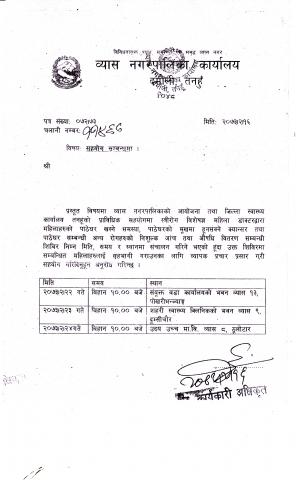 व्यास नगरपालिका कार्यालय
दमौली, तनहुँ
२०४८
पत्र संख्या: ०७२/७३
मिति: २०७२/१२/१६
चलानी नम्बर:
विषय: सहयोग सम्बन्धमा ।
श्री
प्रस्तुत विषयमा व्यास नगरपालिकाको आयोजना तथा जिल्ला स्वास्थ्य
कार्यालय तनहुको प्राविधिक सहयोगमा स्त्रीरोग विशेषज्ञ महिला डाक्टरद्वारा
महिलाहरुको पाठेघर खस्ने समस्या, पाठेघरको मुखमा हुनसक्ने क्यान्सर तथा
पाठेघर सम्बन्धी अन्य रोगहरुको निशुल्क जांच तथा औषधि वितरण सम्बन्धी
शिविर निम्न मिति, समय र स्थानमा संचालन गरिने भएको हुंदा उक्त शिविरमा
सम्बन्धित महिलाहरुलाई सहभागी गराउनका लागि व्यापक प्रचार प्रसार गरी
सहयोग गरिदिनुहुन अनुरोध गरिन्छ ।
मिति समय स्थान
२०७२/१२/२२ गते बिहान १०.०० बजे संयुक्त वडा कार्यालयको भवन व्यास १३,
पोखरीभन्ज्याङ्ग
२०७२/१२/२३ गते बिहान १०.०० बजे शहरी स्वास्थ्य क्लिनिकको भवन व्यास ९,
२०७२/१२/२४गते बिहान १०.०० बजे उदय उच्च मा.वि. व्यास ८,
कार्यकारी अधिकृत